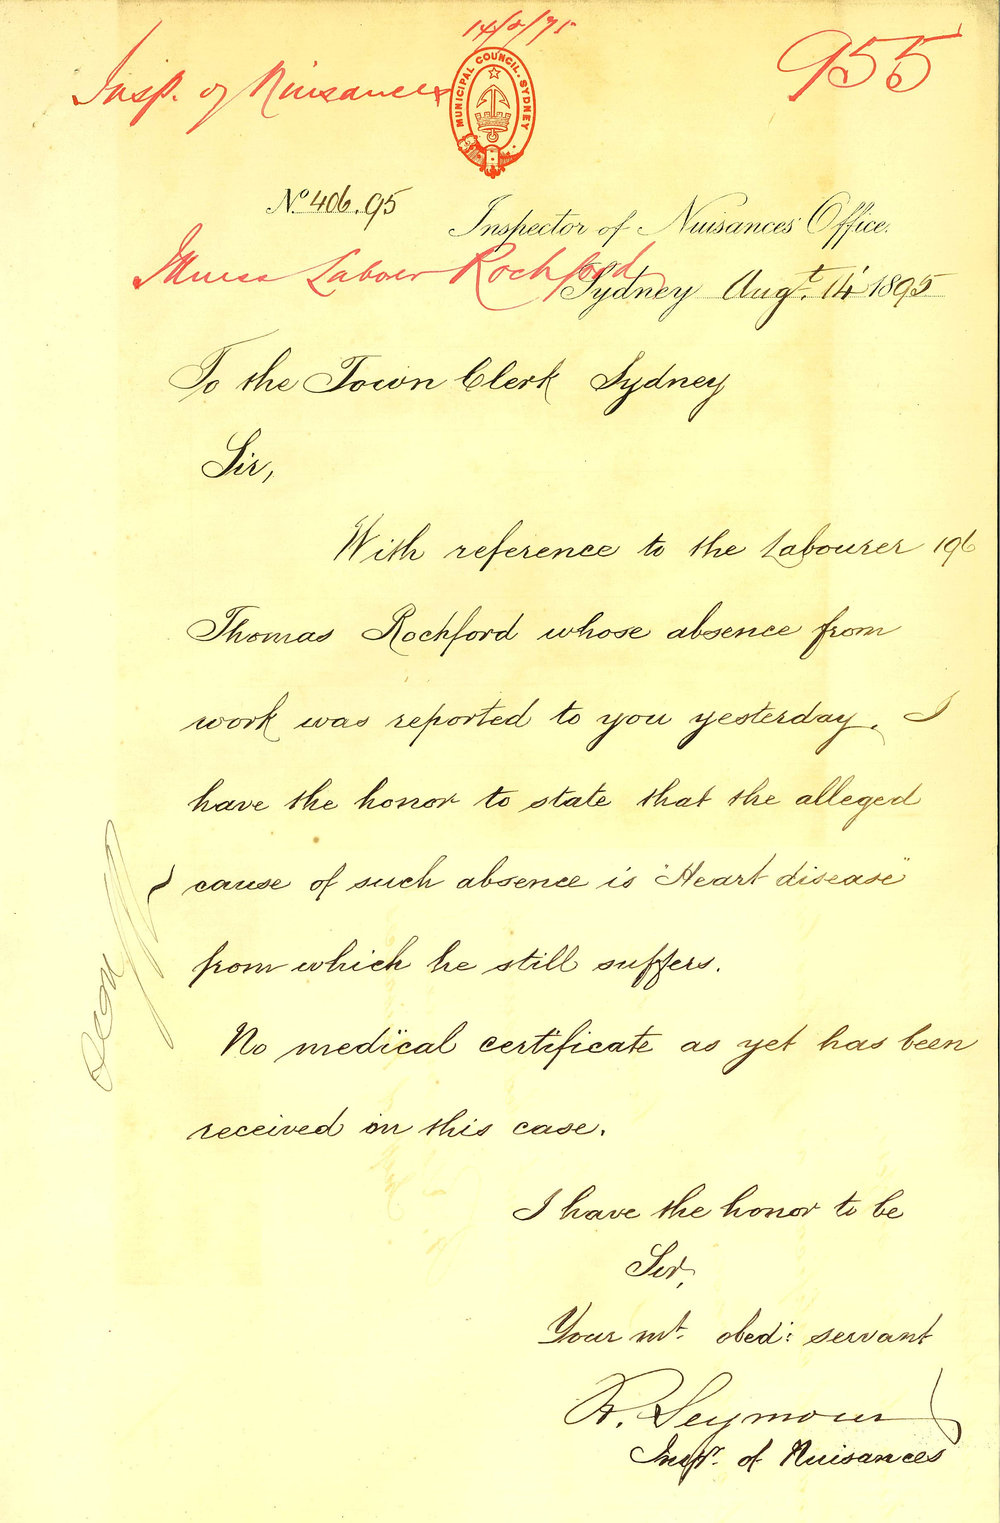 14/8/95
Insp. of Nuisances
955
MUNICIPAL COUNCIL. SYDNEY
No. 406.95
Inspector of Nuisances Office.
Illness Labourer Rochford
Sydney Augt. 14 1895
To the Town Clerk Sydney
Sir,
With reference to the Labourer 196
Thomas Rochford whose absence from
work was reported to you yesterday. I
have the honor to state that the alleged
cause of such absence is "Heart disease"
from which he still suffers.
No medical certificate as yet has been
received in this case.
I have the honor to be
Sir,
Your mt. obed: servant
R. Seymour
Inspr. of Nuisances